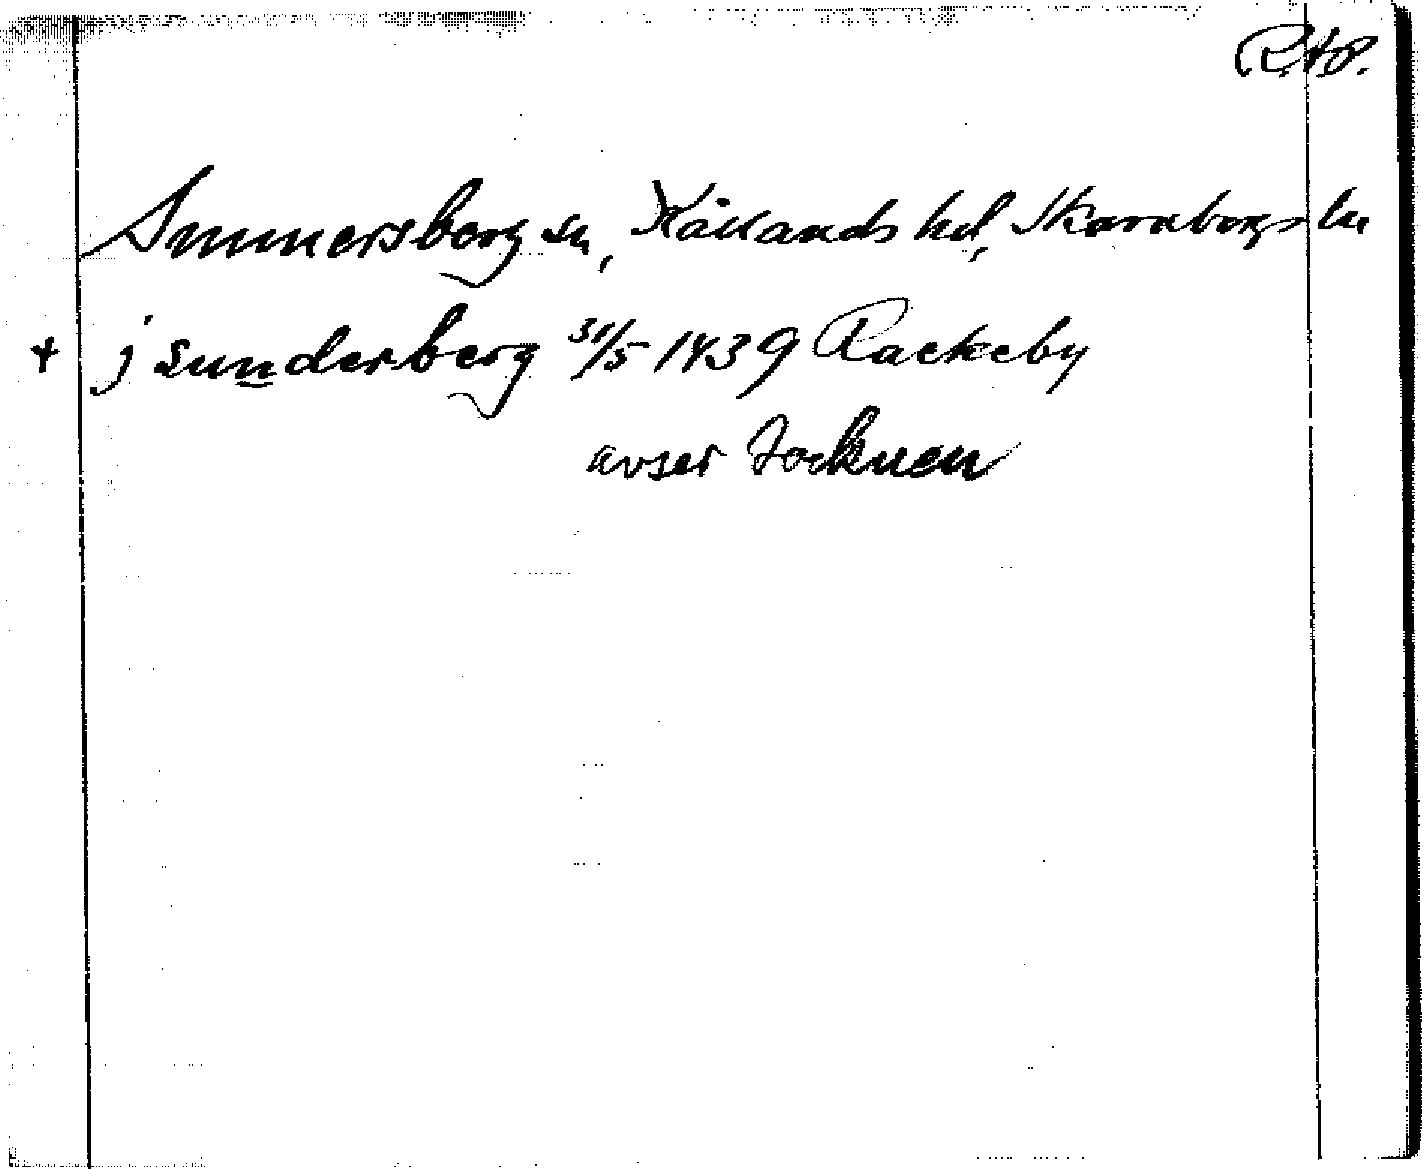 RAP.
Summersberg sn, Kållands hd, Skaraborgs län
+ j sunderberg 31/5 1439 Rackeby
avser socknen